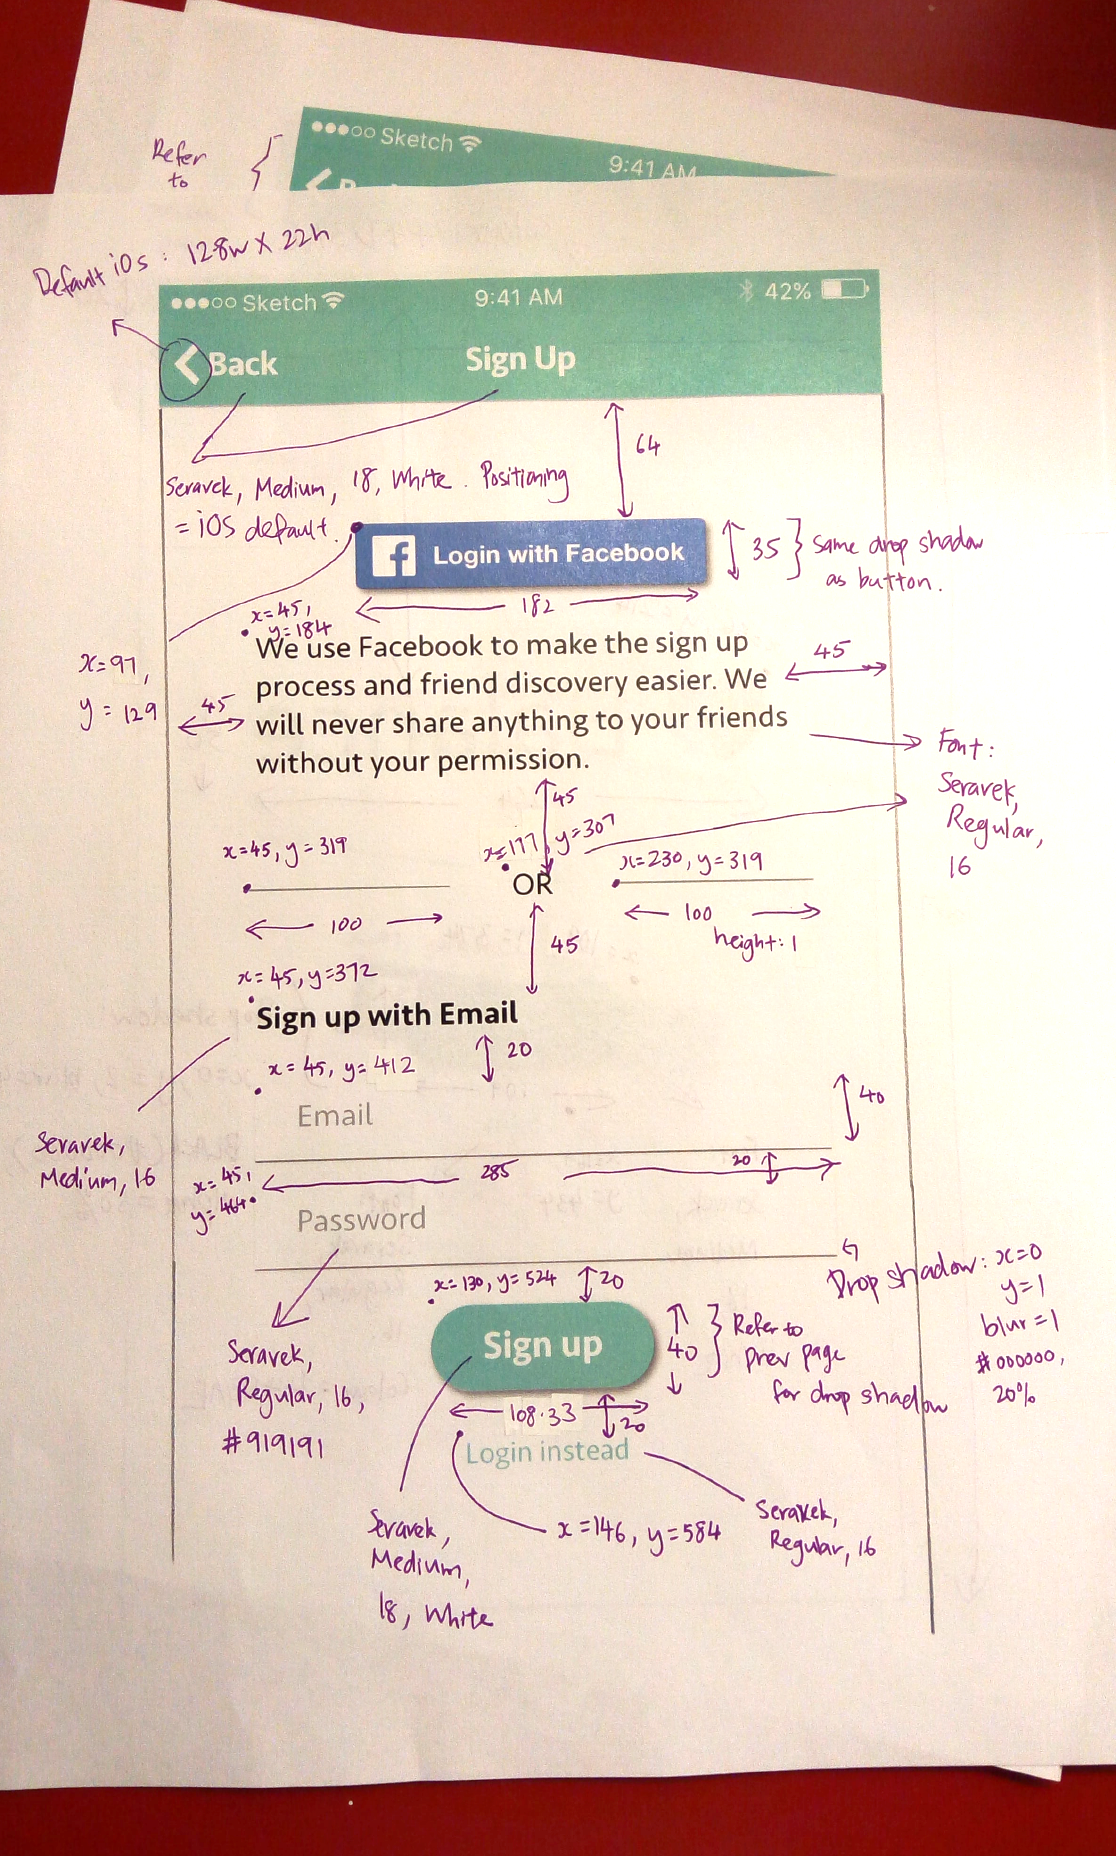 Sketch
9:41 AM
Refer
to
Default iOs : 128w X 22h
Sketch
9:41 AM
42%
Back
Sign Up
64
Seravek, Medium, 18, White. Positioning
= iOS default.
Login with Facebook
35
Same drop shadow
as button.
182
x=45,
y=184
x=97,
y=129
We use Facebook to make the sign up
process and friend discovery easier. We
will never share anything to your friends
without your permission.
45
45
Font:
Seravek,
Regular,
16
45
x=177, y=307
x=45, y=319
x=230, y=319
OR
100
100
height: 1
45
x=45, y=372
Sign up with Email
20
x=45, y=412
Email
40
Seravek,
Medium, 16
285
20
x=45,
y=464
Password
Drop shadow: x=0
y=1
blur=1
#000000,
20%
x=130, y=524
20
Sign up
40
Refer to
prev page
for drop shadow
Seravek,
Regular, 16,
#919191
108.33
20
Login instead
x=146, y=584
Seravek,
Regular, 16
Seravek,
Medium,
18, White